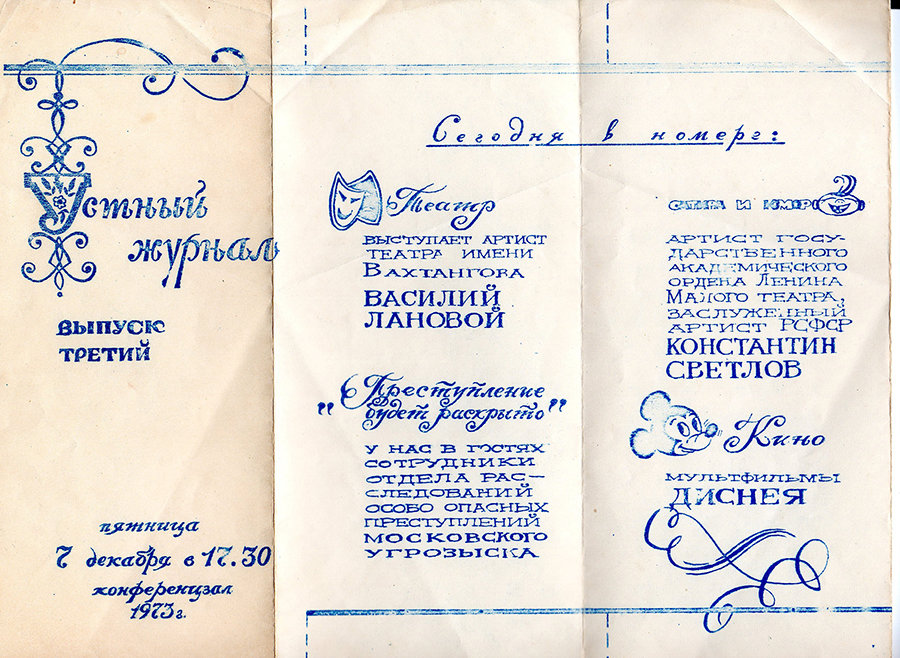 Устный
журнал
ВЫПУСК
ТРЕТИЙ
пятница
7 декабря в 17.30
конференцзал
1973г.
Сегодня в номере:
Театр
ВЫСТУПАЕТ АРТИСТ
ТЕАТРА ИМЕНИ
ВАХТАНГОВА
ВАСИЛИЙ
ЛАНОВОЙ
„Преступление
будет раскрыто”
У НАС В ГОСТЯХ
СОТРУДНИКИ
ОТДЕЛА РАС-
СЛЕДОВАНИЙ
ОСОБО ОПАСНЫХ
ПРЕСТУПЛЕНИЙ
МОСКОВСКОГО
УГРОЗЫСКА
САТИРА И ЮМОР
АРТИСТ ГОСУ-
ДАРСТВЕННОГО
АКАДЕМИЧЕСКОГО
ОРДЕНА ЛЕНИНА
МАЛОГО ТЕАТРА,
ЗАСЛУЖЕННЫЙ
АРТИСТ РСФСР
КОНСТАНТИН
СВЕТЛОВ
Кино
МУЛЬТФИЛЬМЫ
ДИСНЕЯ